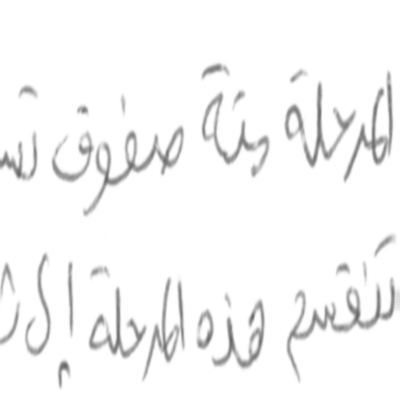 المرحلة ستة صفوف تس
تنقسم هذه المرحلة إلى